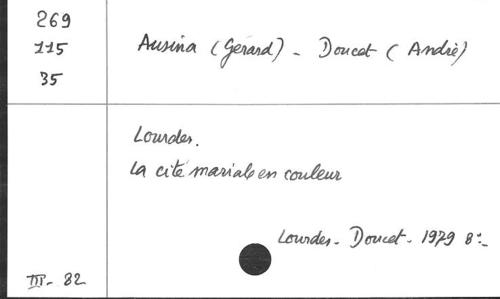 269
115
35
Ausina (Gérard) - Doucet (André)
Lourdes.
La cité mariale en couleur
Lourdes - Doucet - 1979 8°-
III - 82